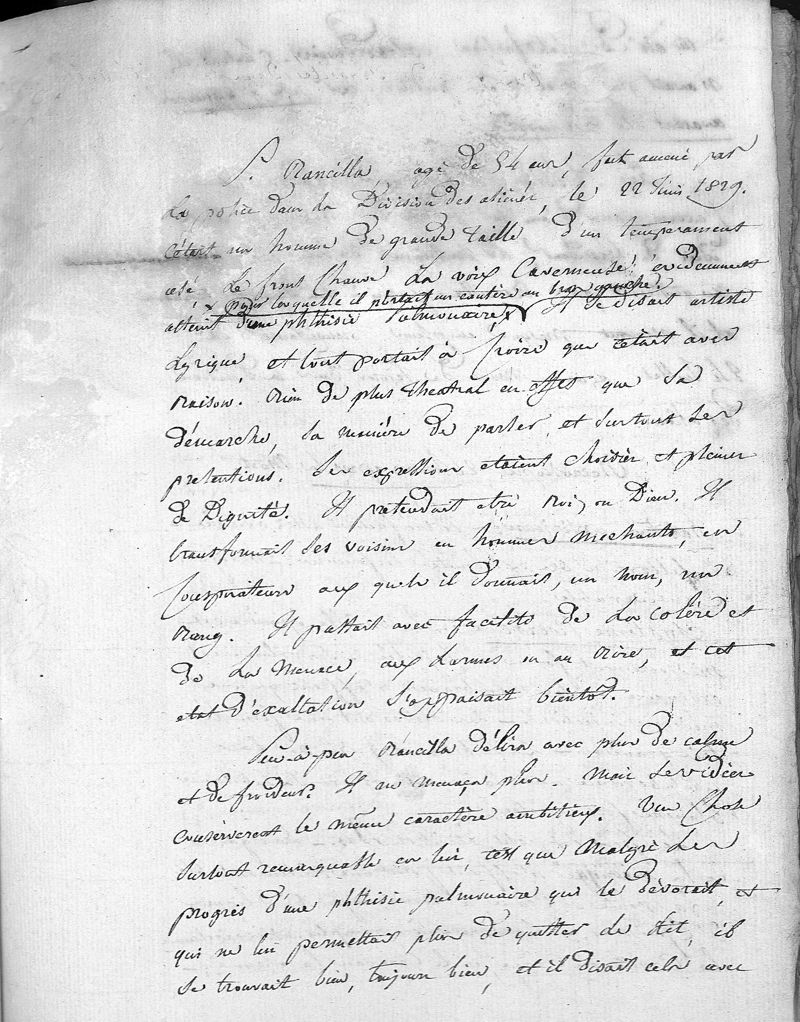 S. Rancilla, agé de 54 ans, fut amené par
la police dans la Division des aliénés, le 22 Juin 1829.
C'était un homme de grande taille d'un temperament
usé le front Chauve la voix Caverneuse, évidemment
pour lesquelle il portait un cautère au bras gauche.
atteint d'une phthisie pulmonaire. Il se disait artiste
Lyrique et tout portait à Croire que c'était avec
raison. Rien de plus theatral en effet que sa
démarche, sa manière de parler, et surtout ses
pretentions. Ses expressions etaient choisies et pleines
de Dignité. Il pretendait etre roi, ou Dieu. Il
transformait ses voisins en hommes mechants, en
Conspirateurs aux quels il donnait, un nom, un
rang. Il passait avec facilité de la colère et
de la menace, aux larmes ou au rire, et cet
etat d'exaltation s'appaisait bientôt.
Peu-à-peu Rancilla délira avec plus de calme
et de froideur. Il ne menaça plus. Mais ses idées
conserverent le même caractère ambitieux. Une Chose
surtout remarquable en lui, c'est que Malgré les
progrès d'une phthisie pulmonaire qui le dévorait, et
qui ne lui permettait plus de quitter le lit, il
se trouvait bien, toujours bien, et il disait cela avec